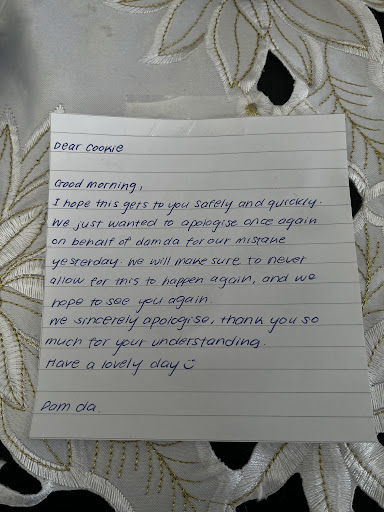 Dear Cookie
Good morning,
I hope this gets to you safely and quickly.
We just wanted to apologise once again
on behalf of damda for our mistake
yesterday. We will make sure to never
allow for this to happen again, and we
hope to see you again.
We sincerely apologise, thank you so
much for your understanding.
Have a lovely day ☺
Dam da.